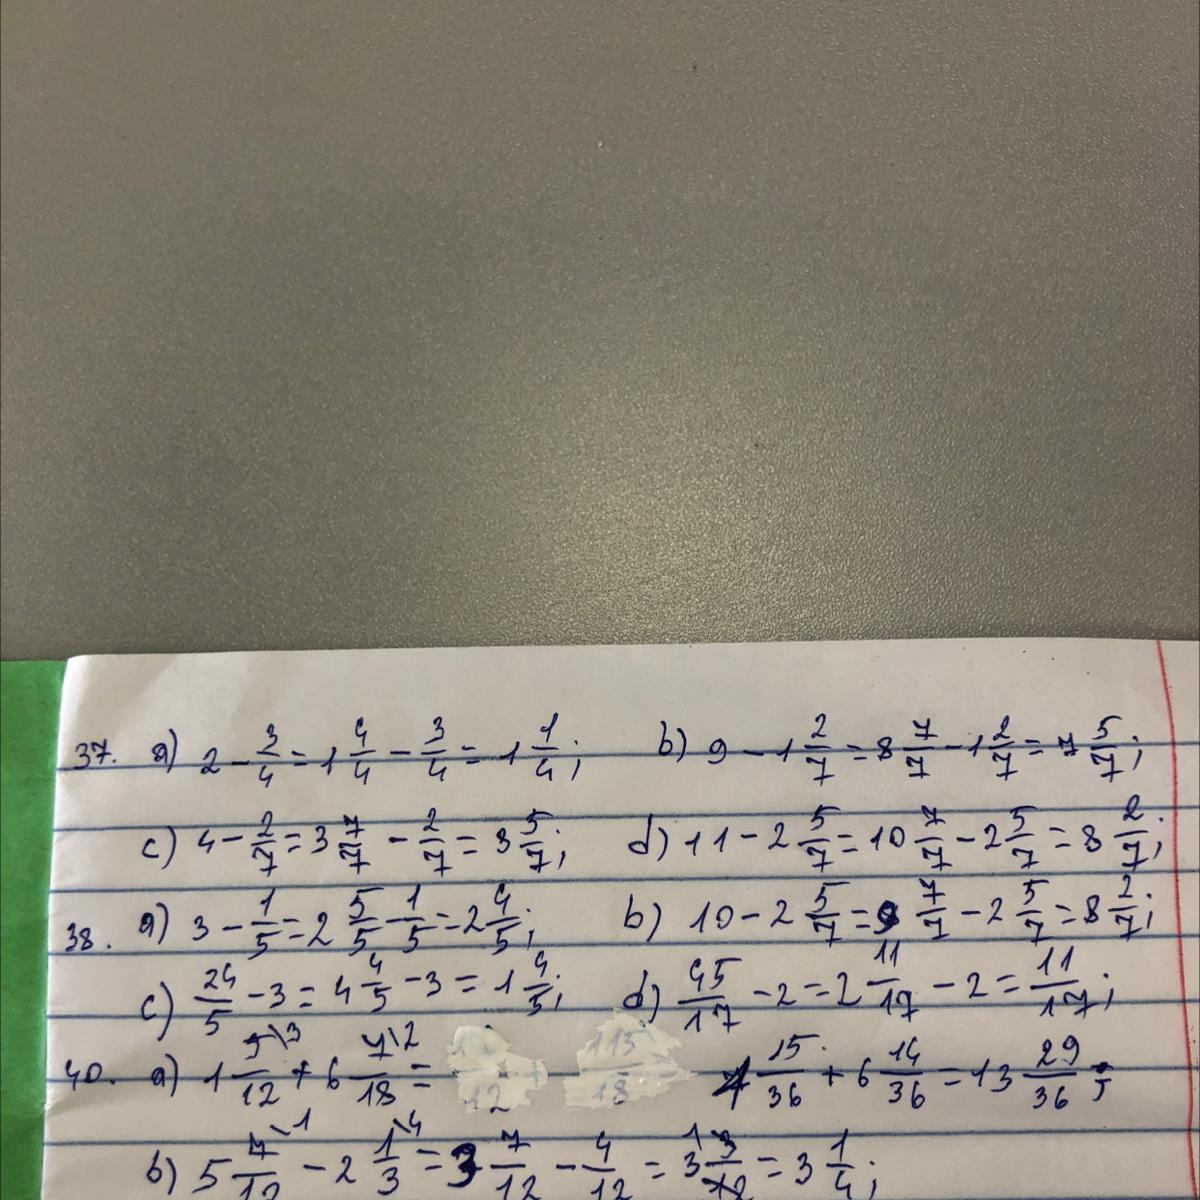 37. a) 2 - 3/4 = 1 4/4 - 3/4 = 1 1/4; b) 9 - 1 2/7 = 8 7/7 - 1 2/7 = 7 5/7;
c) 4 - 2/7 = 3 7/7 - 2/7 = 3 5/7; d) 11 - 2 5/7 = 10 7/7 - 2 5/7 = 8 2/7;
38. a) 3 - 1/5 = 2 5/5 - 1/5 = 2 4/5; b) 10 - 2 5/7 = 9 7/7 - 2 5/7 = 8 2/7;
c) 24/5 - 3 = 4 4/5 - 3 = 1 4/5; d) 45/17 - 2 = 2 11/17 - 2 = 11/17;
40. a) 1 5\3/12 + 6 7\2/18 = 15/36 + 6 14/36 = 13 29/36;
b) 5 7\1/12 - 2 1\4/3 = 3 7/12 - 4/12 = 3 3/12 = 3 1/4;